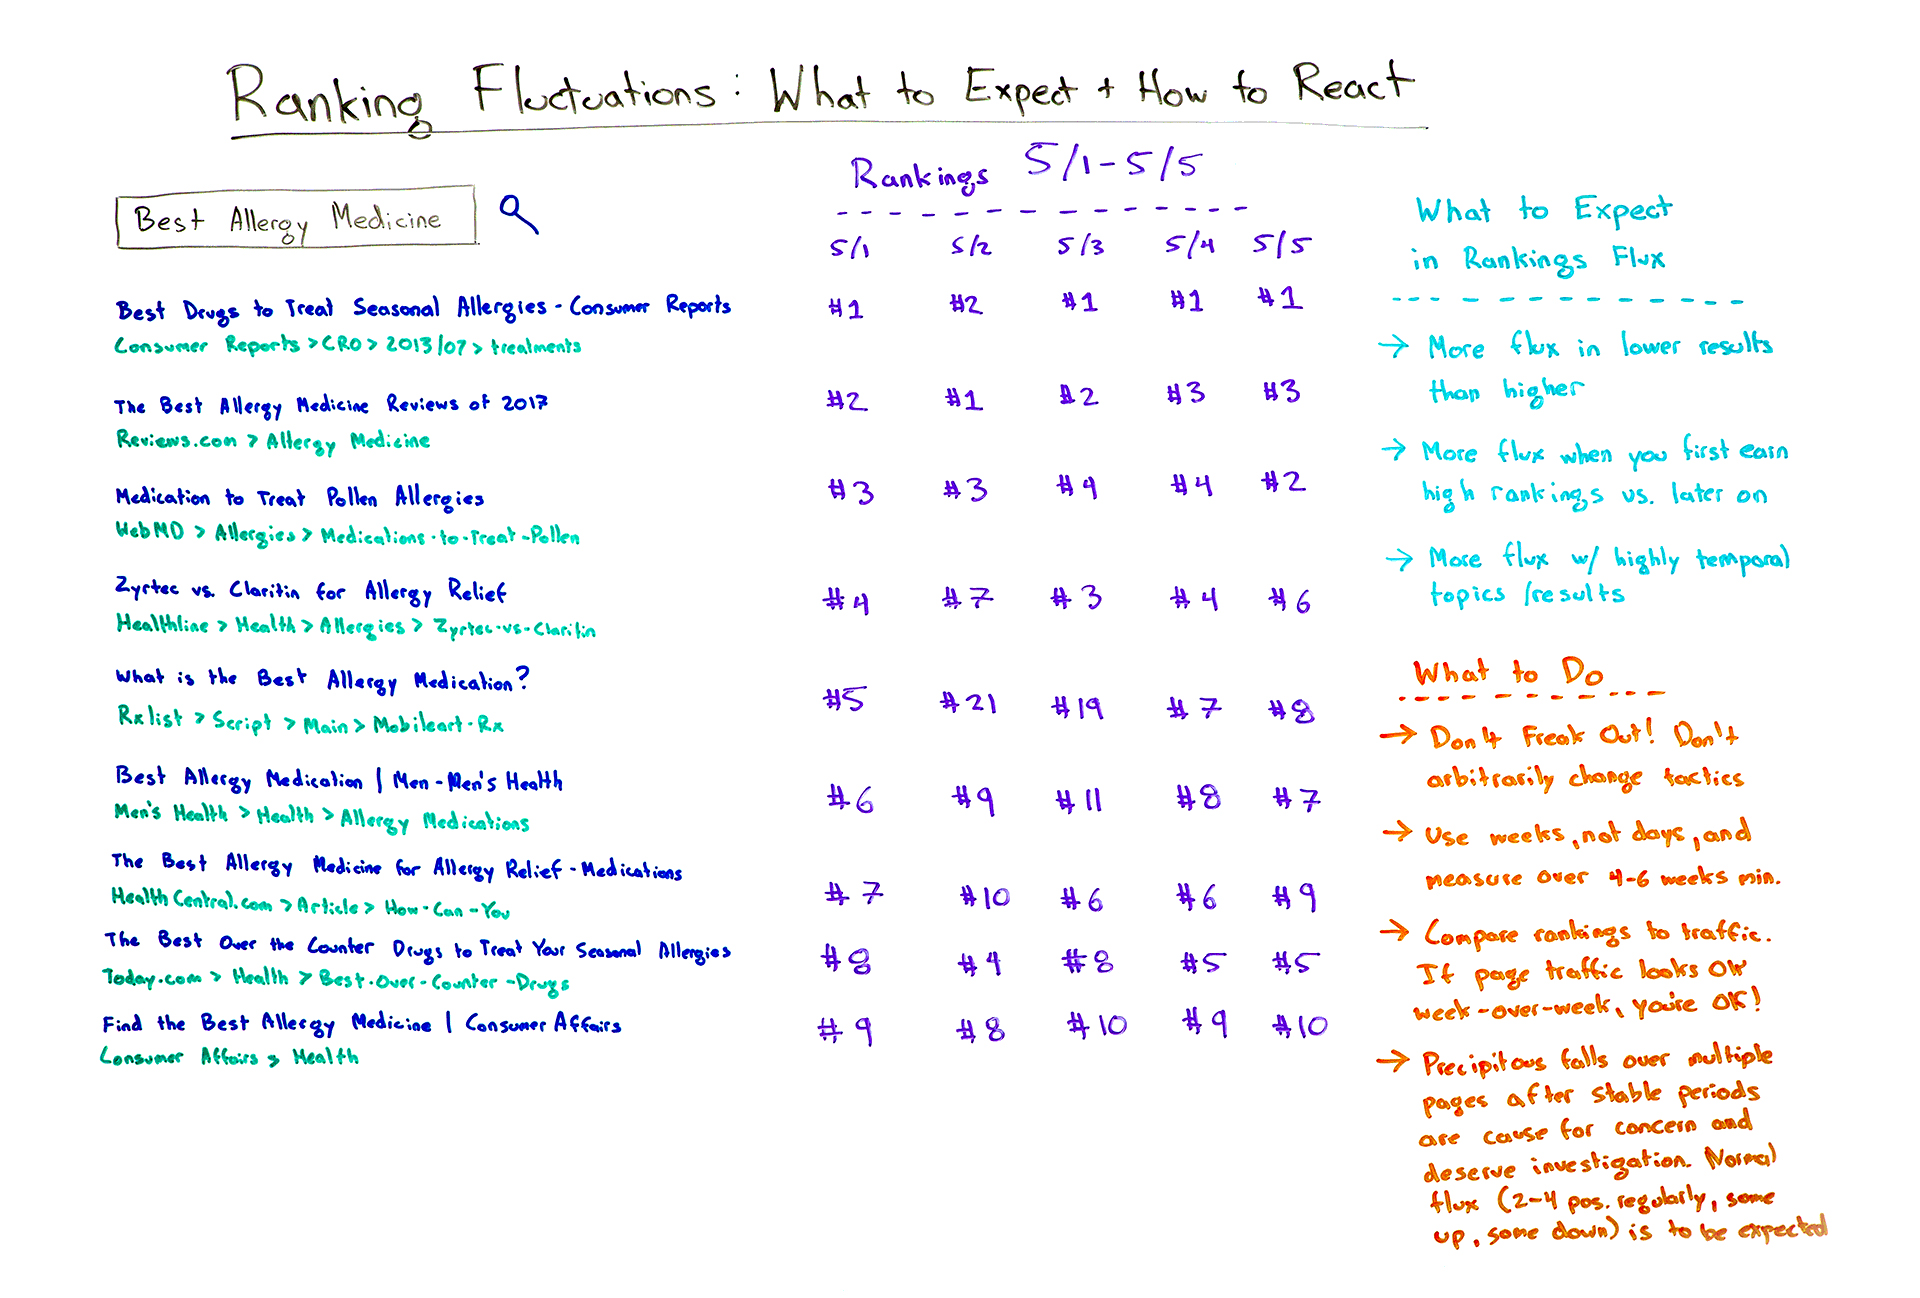 Ranking Fluctuations: What to Expect + How to React
Rankings 5/1-5/5
Best Allergy Medicine
5/1 5/2 5/3 5/4 5/5
Best Drugs to Treat Seasonal Allergies - Consumer Reports #1 #2 #1 #1 #1
Consumer Reports > CRO > 2013/07 > treatments
The Best Allergy Medicine Reviews of 2017 #2 #1 #2 #3 #3
Reviews.com > Allergy Medicine
Medication to Treat Pollen Allergies #3 #3 #4 #4 #2
WebMD > Allergies > Medications-to-Treat-Pollen
Zyrtec vs. Claritin for Allergy Relief #4 #7 #3 #4 #6
Healthline > Health > Allergies > Zyrtec-vs-Claritin
What is the Best Allergy Medication? #5 #21 #19 #7 #8
Rxlist > Script > Main > Mobileart-Rx
Best Allergy Medication | Men-Men's Health #6 #9 #11 #8 #7
Men's Health > Health > Allergy Medications
The Best Allergy Medicine for Allergy Relief - Medications #7 #10 #6 #6 #9
HealthCentral.com > Article > How-Can-You
The Best Over the Counter Drugs to Treat Your Seasonal Allergies #8 #4 #8 #5 #5
Today.com > Health > Best-Over-Counter-Drugs
Find the Best Allergy Medicine | Consumer Affairs #9 #8 #10 #9 #10
Consumer Affairs > Health
What to Expect
in Rankings Flux
→ More flux in lower results
than higher
→ More flux when you first earn
high rankings vs. later on
→ More flux w/ highly temporal
topics/results
What to Do
→ Don't Freak Out! Don't
arbitrarily change tactics
→ Use weeks, not days, and
measure over 4-6 weeks min.
→ Compare rankings to traffic.
If page traffic looks OK
week-over-week, you're OK!
→ Precipitous falls over multiple
pages after stable periods
are cause for concern and
deserve investigation. Normal
flux (2-4 pos. regularly, some
up, some down) is to be expected